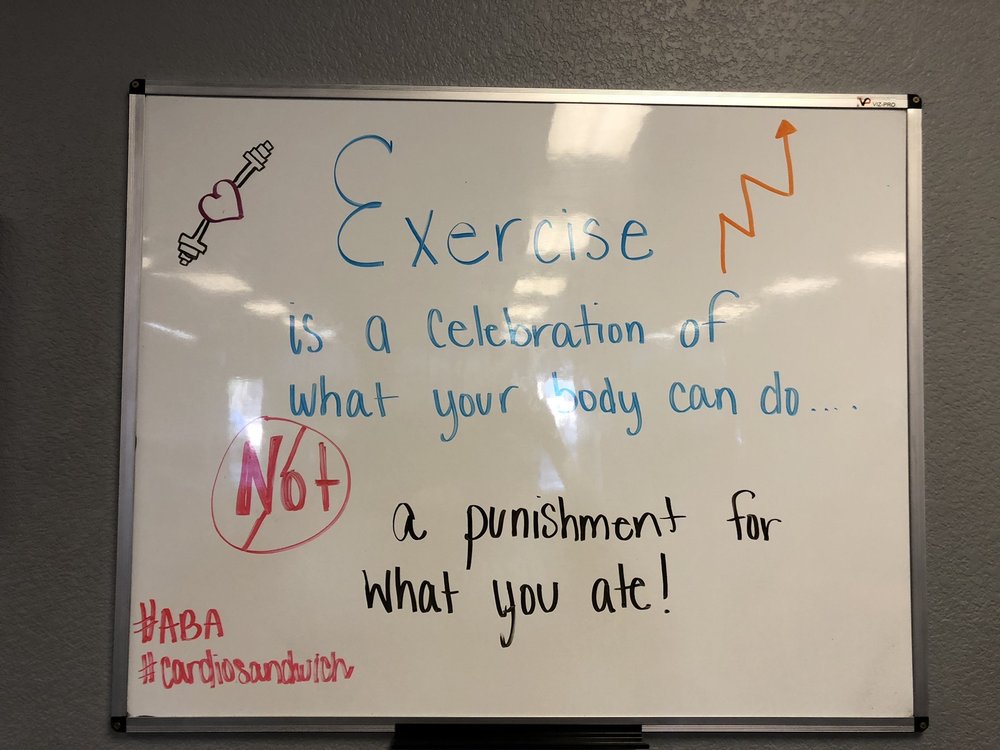 VIZ-PRO
Exercise
is a celebration of
what your body can do....
Not
a punishment for
what you ate!
#ABA
#cardiosandwich